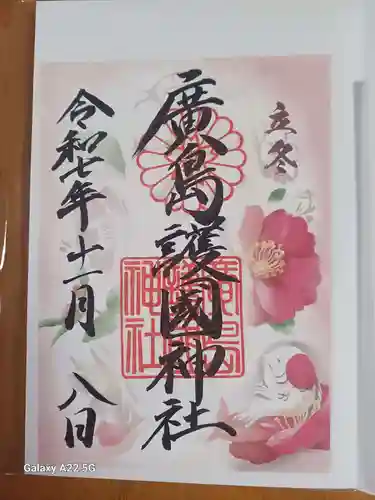 立冬
廣島護國神社
令和七年十一月八日
廣島護國神社
Galaxy A22 5G